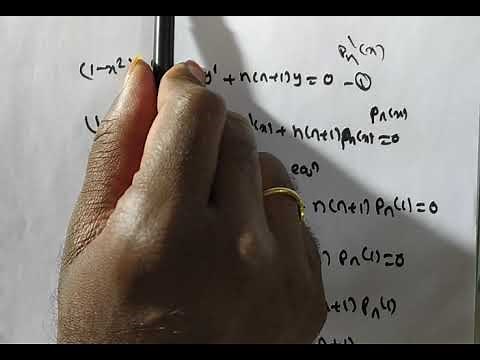 Pn'(x)
(1-x² y' + n(n+1)y=0 -①
Pn(x)
(1 '(x) + n(n+1)Pn(x)=0
eqn
n(n+1) Pn(1)=0
) Pn(1)=0
+1) Pn(1)
+1)